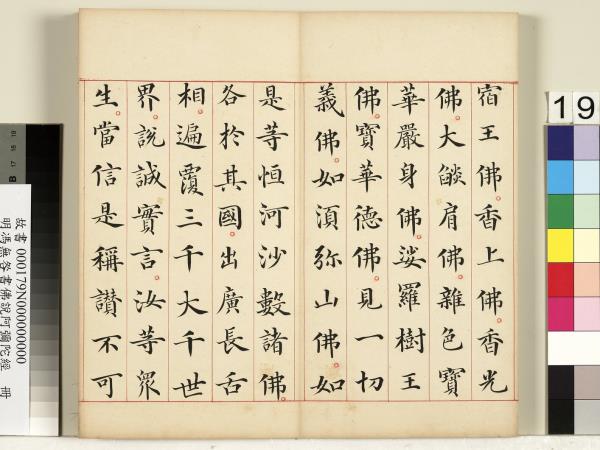 宿王佛。香上佛。香光
佛。大燄肩佛。雜色寶
華嚴身佛。娑羅樹王
佛。寶華德佛。見一切
義佛。如須彌山佛。如
是等恒河沙數諸佛。
各於其國。出廣長舌
相。遍覆三千大千世
界。說誠實言。汝等眾
生。當信是稱讚不可
19
故書000179N000000000
明馮無咎書佛說阿彌陀經 冊